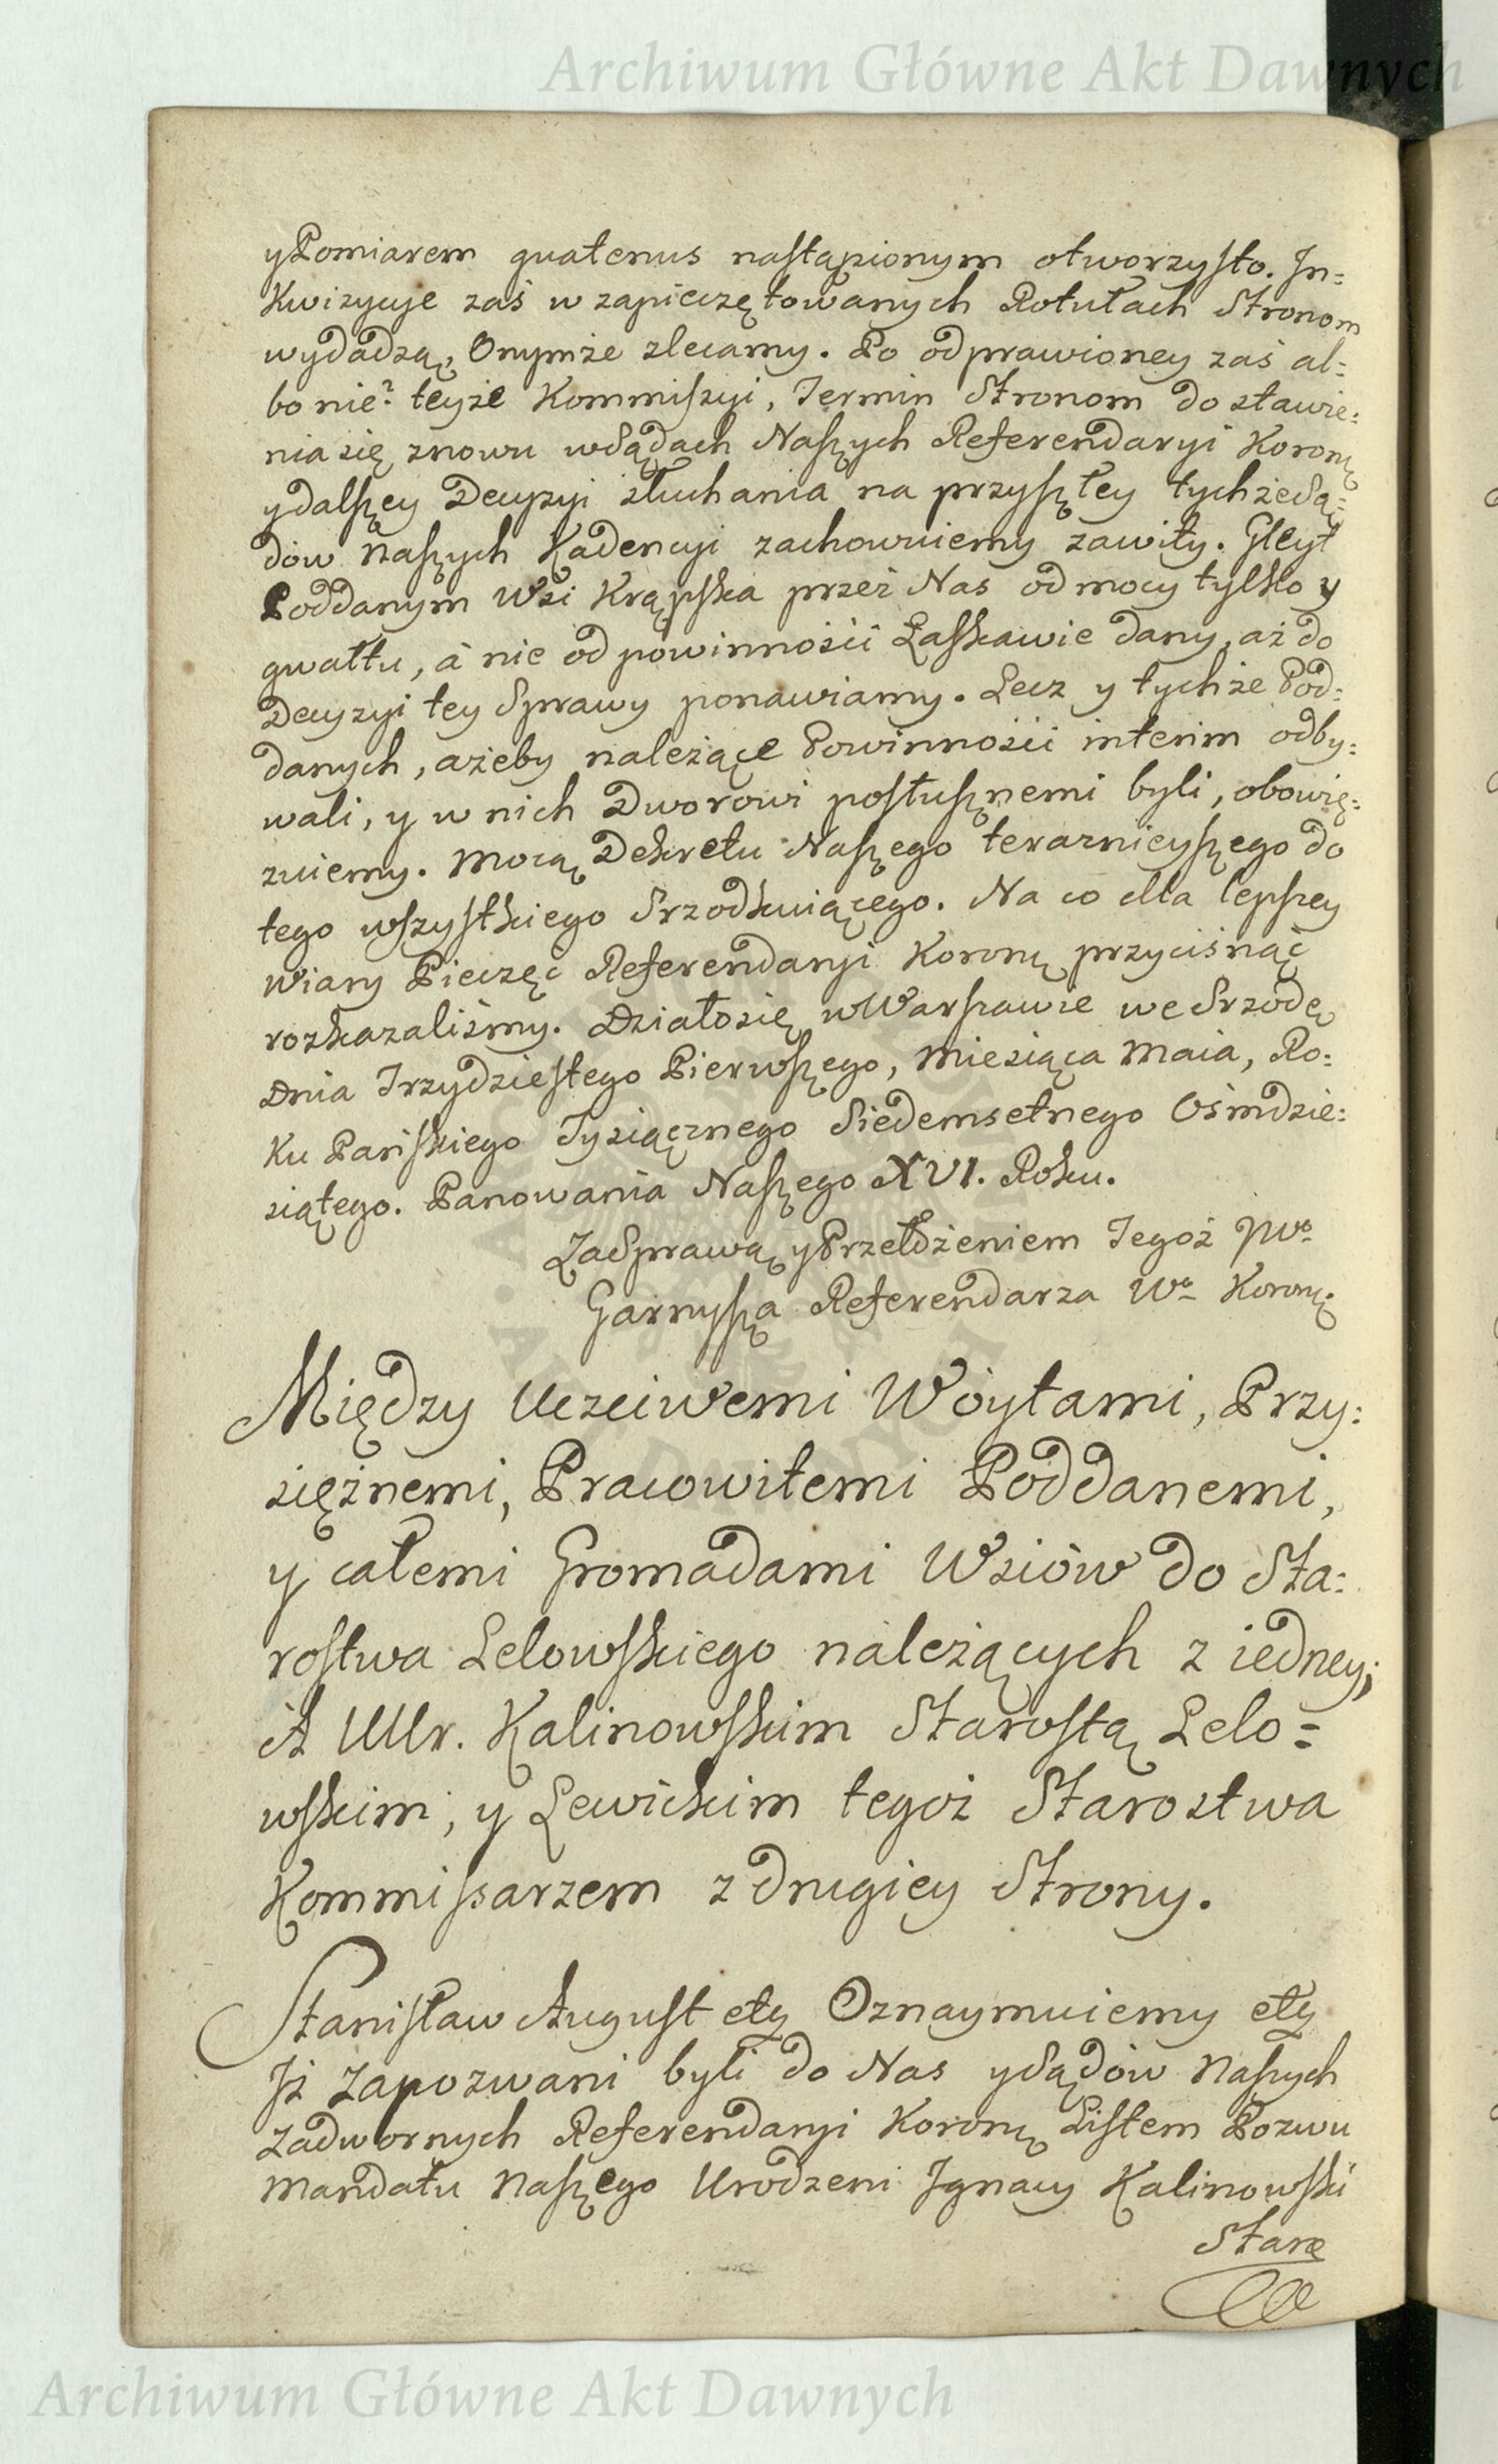 Archiwum Główne Akt Dawnych
y Pomiarem quatenus nastąpionym otworzysto. In=
Kwizycye zaś w zapieczętowanych Rotułach Stronom
wydadzą, Onymże zlecamy. Po odprawioney zaś al=
bo nie? teyże Kommissyi, Termin Stronom do stawie=
nia się znowu w Sądach Naszych Referendaryi Koronę
y dalszey Decyzyi słuchania na przyszłey tychże Są=
dów Naszych Kadencyi zachowuiemy zawity. Gleyt
Poddanym Wsi Krąpska przez Nas od mocy tylko y
gwałtu, a nie od powinności Łaskawie dany, aż do
Decyzyi tey Sprawy ponawiamy. Lecz y tychże Pod=
danych, ażeby należące Powinności interim odby=
wali, y w nich Dworowi posłusznemi byli, obowię=
zuiemy. Mocą Dekretu Naszego teraznieyszego do
tego wszystkiego Srzodkuiącego. Na co dla lepszey
Wiary Pieczęć Referendaryi Koronę przycisnąć
rozkazaliśmy. Działo się w Warszawie we Srzodę
Dnia Trzydziestego Pierwszego, Miesiąca Maia, Ro=
ku Pańskiego Tysiącznego Siedemsetnego Ośmdzie=
siątego. Panowania Naszego XVI. Roku.
Za Sprawą y Przełożeniem Tegoż JWo
Garnysza Referendarza Wo Koronę
Między Uczciwemi Wóytami, Przy=
siężnemi, Pracowitemi Poddanemi,
y całemi Gromadami Wsiów do Sta=
rostwa Lelowskiego należących z iedney;
A UUr. Kalinowskim Starostą Lelo=
wskim, y Lewickim tegoż Starostwa
Kommissarzem z drugiey Strony.
Stanisław August etz Oznaymuiemy etz
Iż Zapozwani byli do Nas y Sądów Naszych
Zadwornych Referendaryi Koronę Listem Pozwu
Mandatu Naszego Urodzeni Ignacy Kalinowski
Starę
Archiwum Główne Akt Dawnych